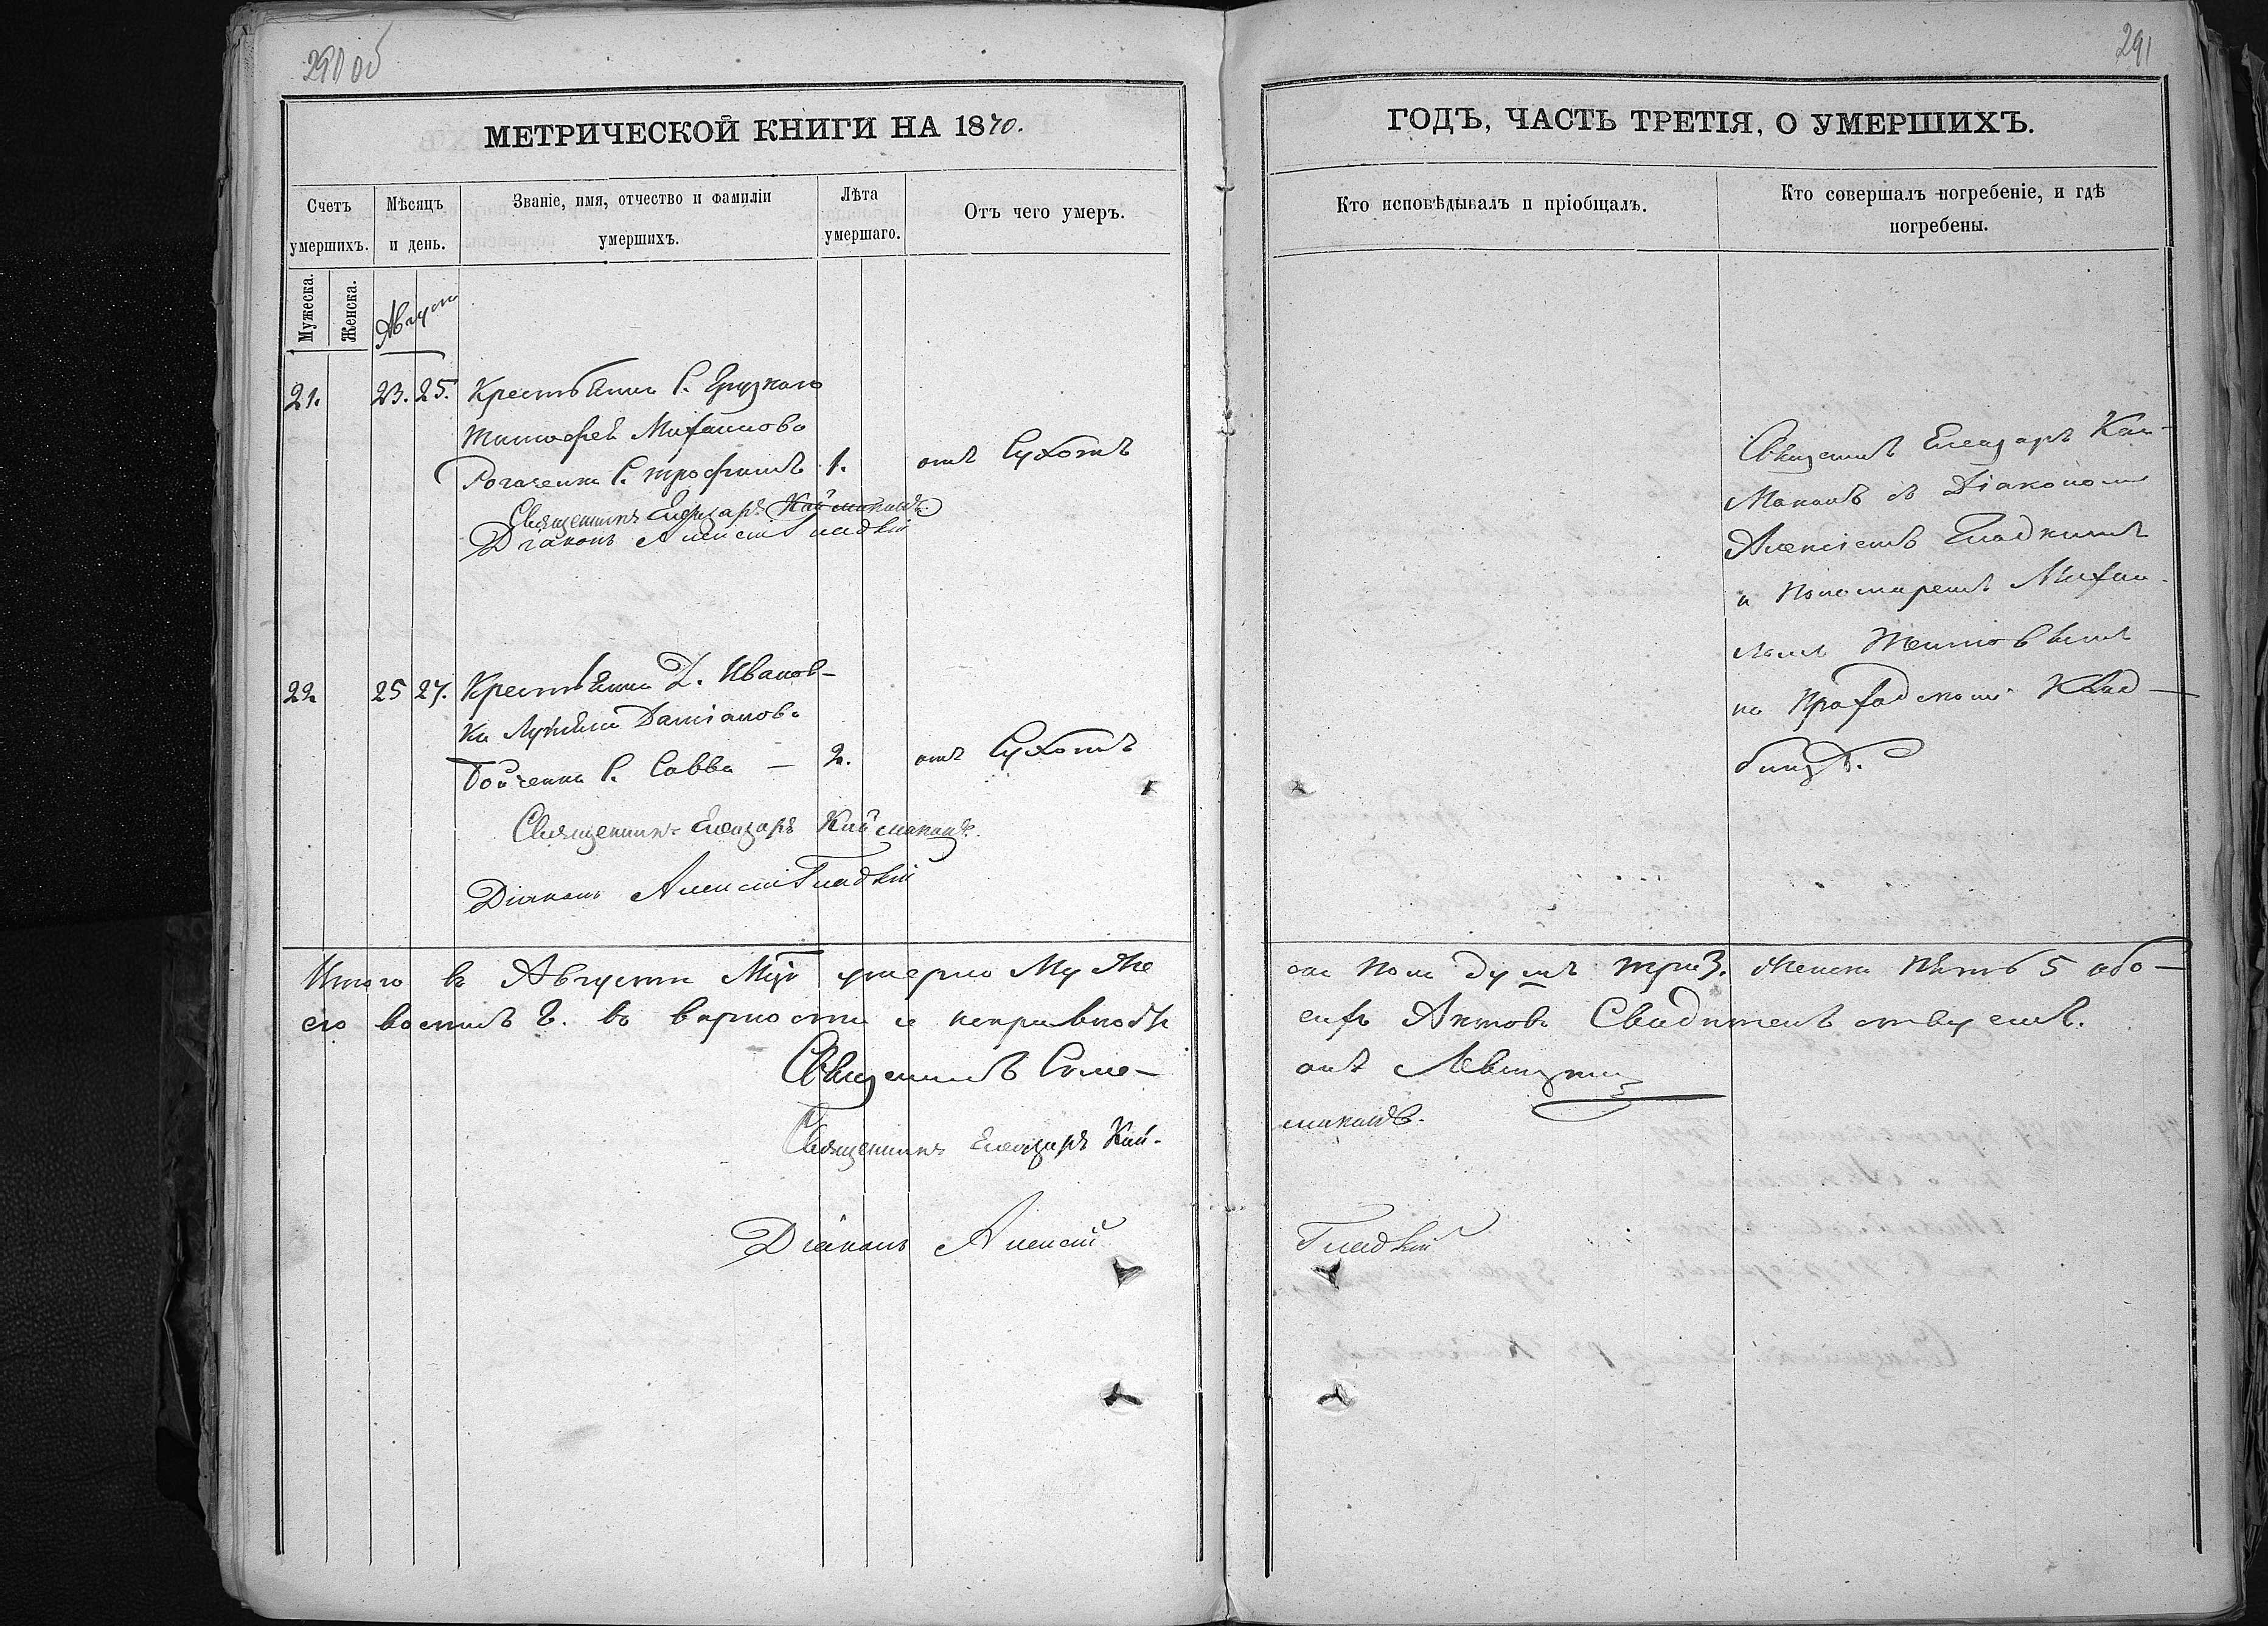 290 об
МЕТРИЧЕСКОЙ КНИГИ НА 1870.
Счетъ умершихъ.
Мѣсяцъ и день.
Званіе, имя, отчество и фамиліи умершихъ.
Лѣта умершаго.
Отъ чего умеръ.
Мужеска.
Женска.
Августъ
21.
23. 25.
Крестьянина С. Грузкаго
Тимофея Михаилова
Рогаченка С. Трофимъ 1. отъ Сухотъ
Священникъ Елеазаръ Каймаканъ.
Діаконъ Алексій Гладкій
22.
25 27.
Крестьянина Д. Иванов-
ки Лукіана Даміанова
Бойченка С. Савва — 2. отъ Сухотъ
Священникъ Елеазаръ Каймаканъ.
Діаконъ Алексій Гладкій
Итого въ Августѣ Мцѣ умерло Муже
его восемь 8. въ вѣрности и
Священникъ
Священникъ Елеазаръ Кай-
Діаконъ Алексій
291
ГОДЪ, ЧАСТЬ ТРЕТІЯ, О УМЕРШИХЪ.
Кто исповѣдывалъ и пріобщалъ.
Кто совершалъ погребеніе, и гдѣ погребены.
Священникъ Елеазаръ Кай-
маканъ съ Діакономъ
Алексіемъ Гладкимъ
и Пономаремъ Михаи-
ломъ
на Приходскомъ Клад-
бищѣ.
ска пола душъ три 3. женска пять 5 обо-
ихъ Актовъ Свидѣтельствуемъ.
Левицкій
маканъ.
Гладкій